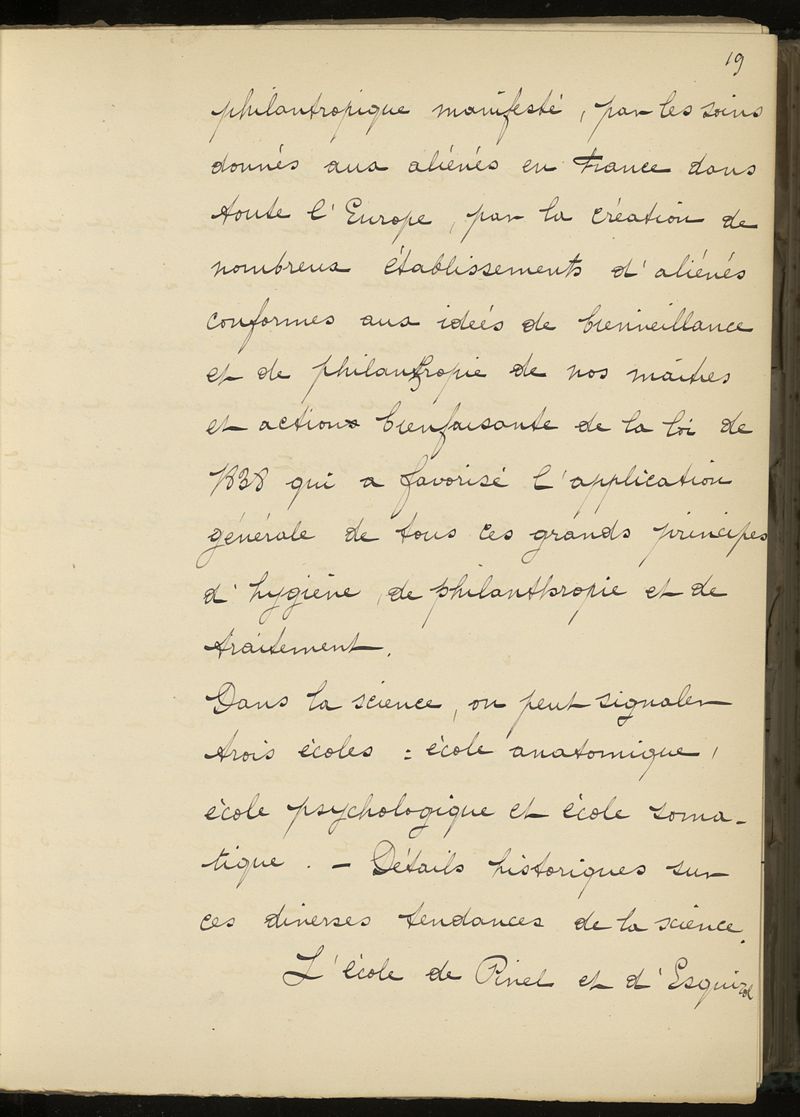 19
philantropique manifesté, par les soins
donnés aux aliénés en France dans
toute l'Europe, par la création de
nombreux établissements d'aliénés
conformes aux idées de bienveillance
et de philanthropie de nos maîtres
et action bienfaisante de la loi de
1838 qui a favorisé l'application
générale de tous ces grands principes
d'hygiène, de philanthropie et de
traitement.
Dans la science, on peut signaler
trois écoles : école anatomique,
école psychologique et école soma-
tique. - Détails historiques sur
ces diverses tendances de la science.
L'école de Pinel et d'Esquirol